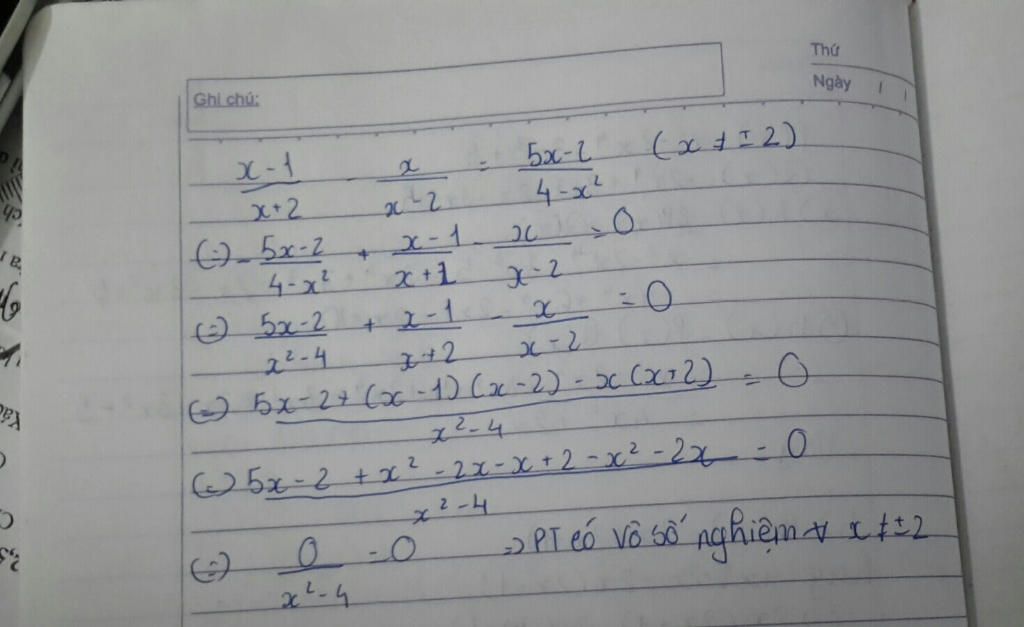 Thứ
Ghi chú:
Ngày / /
(x-1)/(x+2) - x/(x-2) = (5x-2)/(4-x²) (x ≠ ±2)
(=) -(5x-2)/(4-x²) + (x-1)/(x+2) - x/(x-2) = 0
(=) (5x-2)/(x²-4) + (x-1)/(x+2) - x/(x-2) = 0
(=) (5x-2+(x-1)(x-2)-x(x+2))/(x²-4) = 0
(=) (5x-2+x²-2x-x+2-x²-2x)/(x²-4) = 0
(=) 0/(x²-4) = 0 => PT có vô số nghiệm ∀ x ≠ ±2